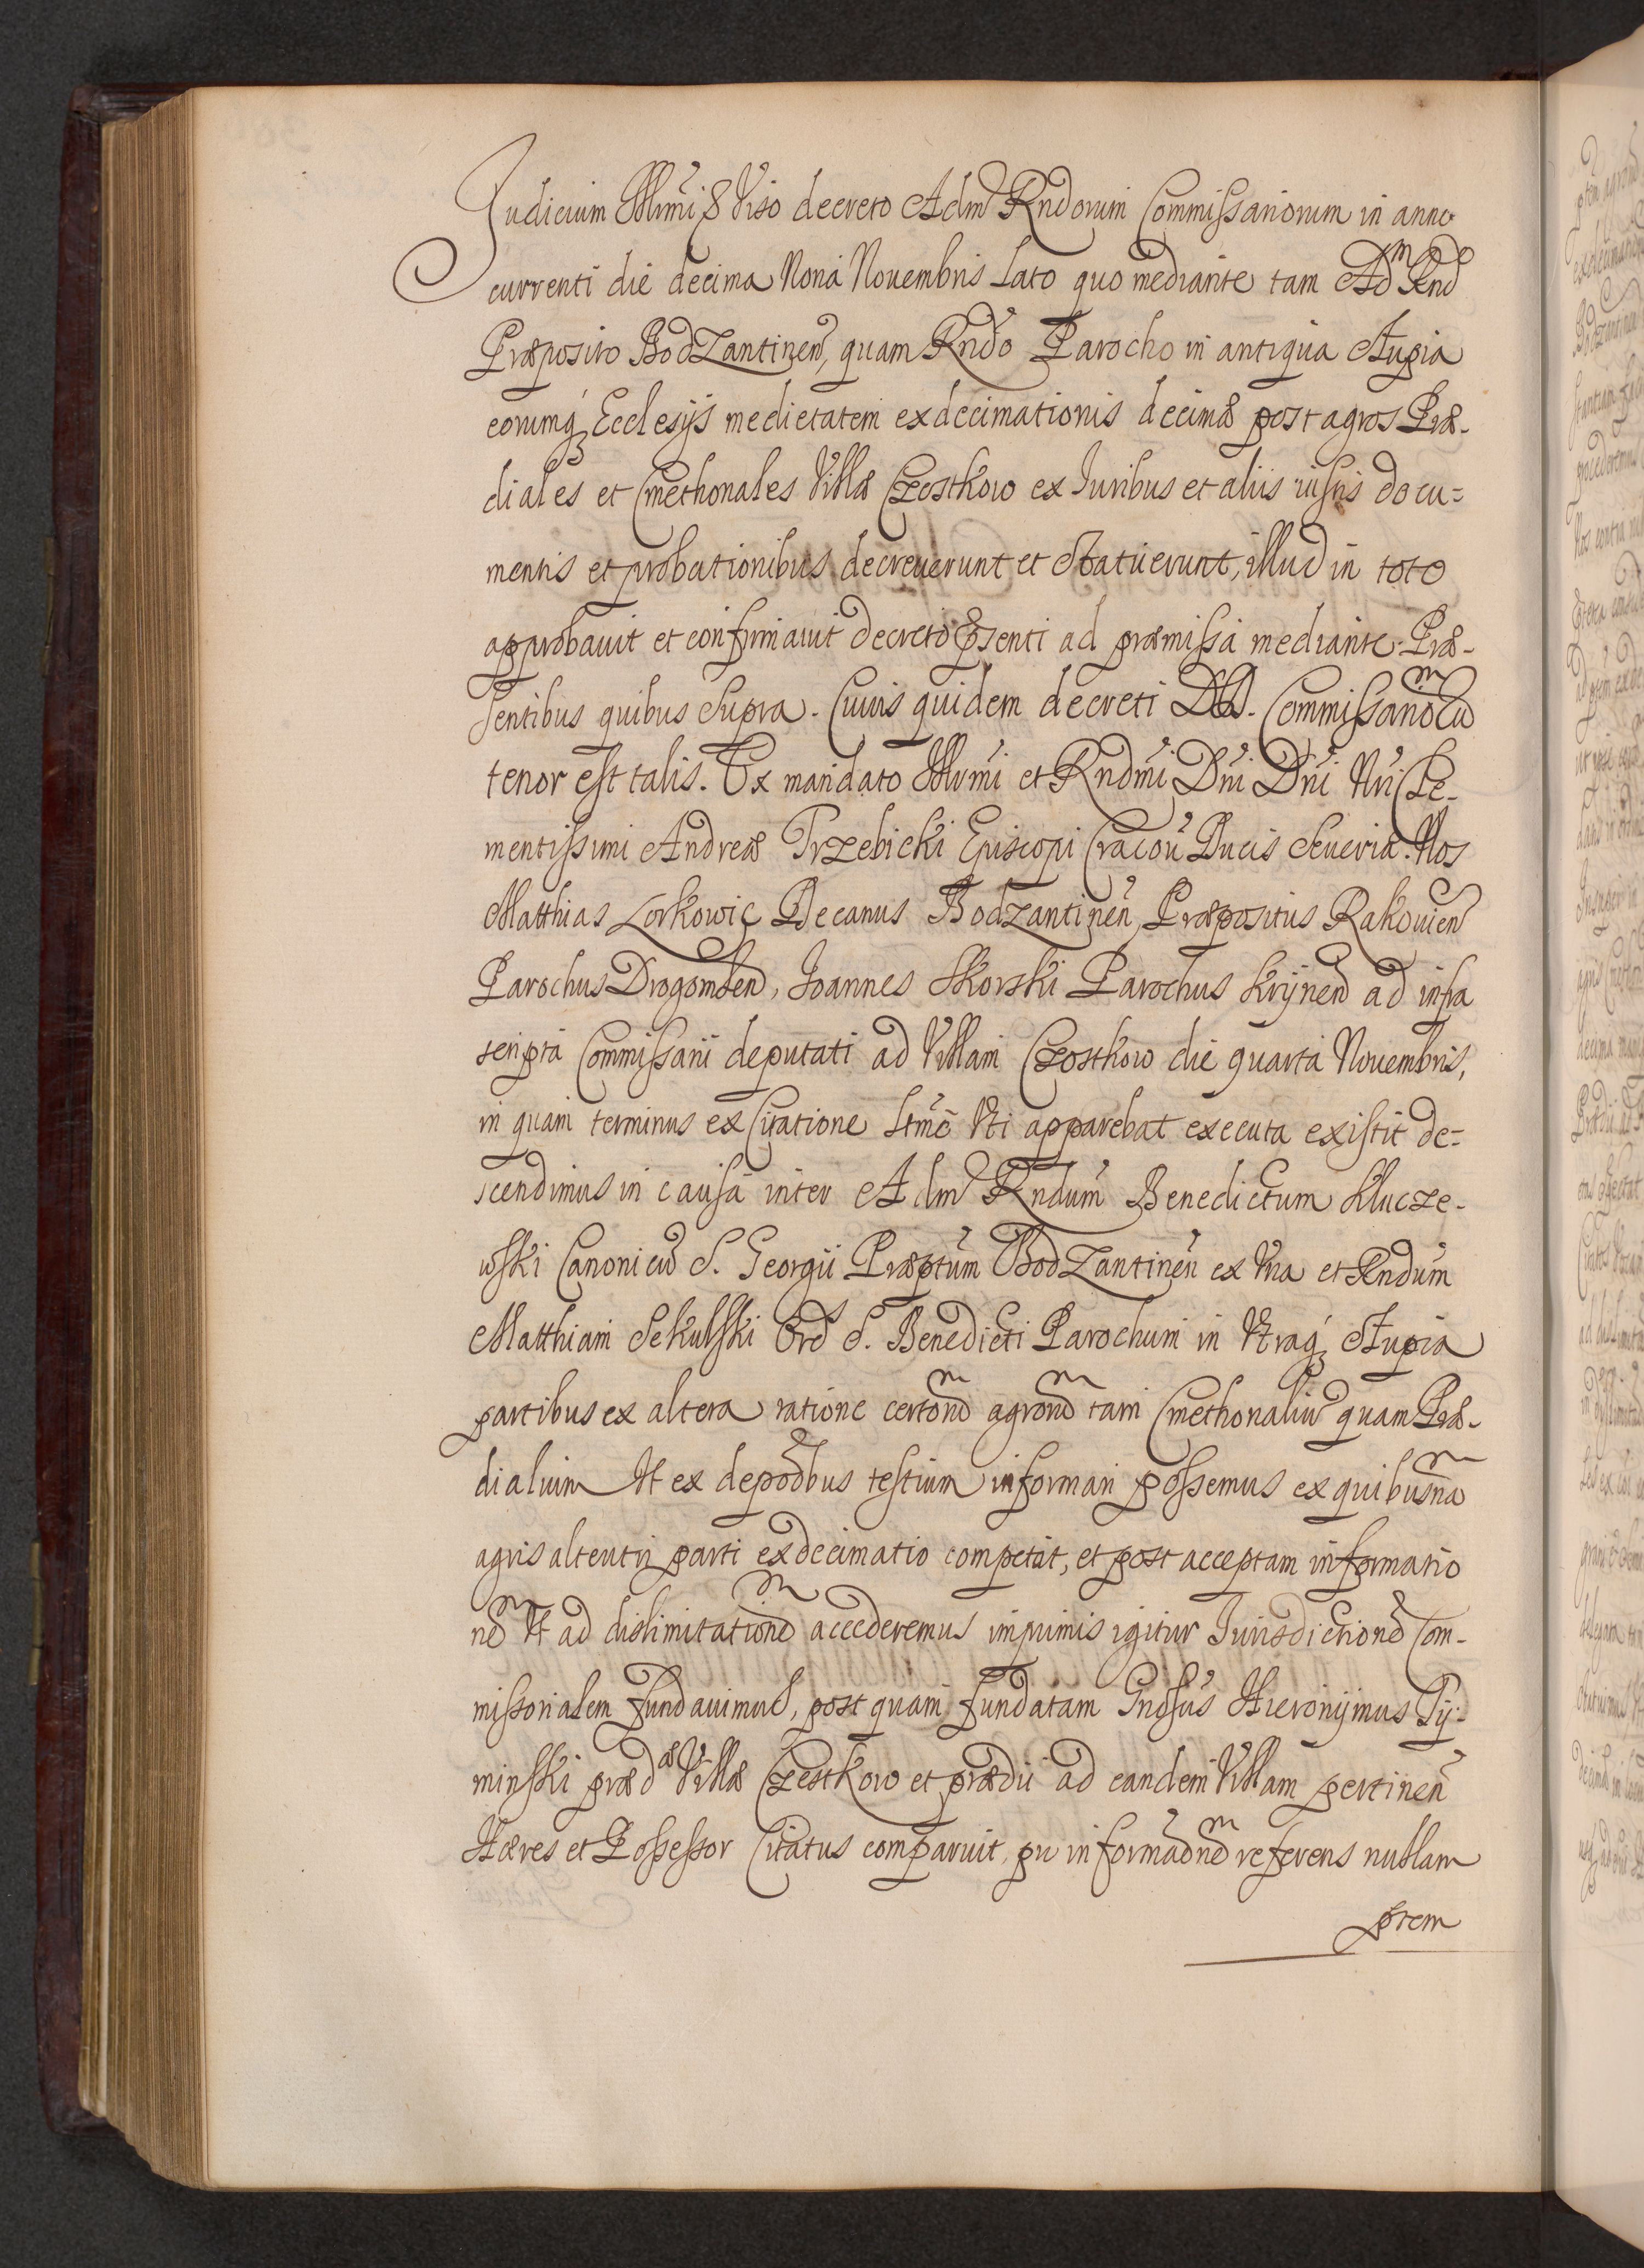 Judicium Illmi & Viso decreto Adm Rndorum Commissariorum in anno
currenti die decima Nona Nouembris Lato quo mediante tam Adm Rnd
Præposito Bodzantinen, quam Rndo Parocho in antiqua Slupia
eorumq Ecclesijs medietatem exdecimationis decimæ post agros Præ-
diales et Cmethonales Villæ Czostkow ex Iuribus et aliis iustis docu=
mentis et probationibus decreuerunt et Statuerunt, illud in toto
approbauit et confirmauit decreto psenti ad præmissa mediante. Præ-
sentibus quibus Supra. Cuius quidem decreti DD. Commissario
tenor est talis. Ex mandato Illmi et Rndmi Dni Dni Nri Cle-
mentissimi Andreæ Trzebicki Episcopi Cracou Ducis Seueria. Nos
Matthias Lorkowic Decanus Bodzantinen Præpositus Rakouien
Parochus Drogomlen, Joannes Skorski Parochus Krijnen ad infra
scripta Commissarii deputati ad Villam Czostkow die quarta Nouembris,
in quam terminus ex Citatione Ltmē Vti apparebat executa existit de=
scendimus in causa inter Adm Rndum Benedictum Klucze-
wski Canonicu S. Georgii Præptum Bodzantinen ex Vna et Rndum
Matthiam Sekulski Ord S. Benedicti Parochum in Vtraq Slupia
partibus ex altera ratione certorū agrorū tam Cmethonaliu quam Præ-
dialium Vt ex depōbus testium informari possemus ex quibusna
agris alterutri parti exdecimatio competat, et post acceptam informatio
ne Vt ad dislimitatione accederemus imprimis igitur Iurisdictione Com-
missorialem fundauimus, post quam fundatam Gnosus Hieronijmus Tij-
minski præd æ Villæ Czestkow et prædii ad eandem Villam pertinen
Hæres et Possessor Citatus comparuit, pu informaone referens nullam
ptem